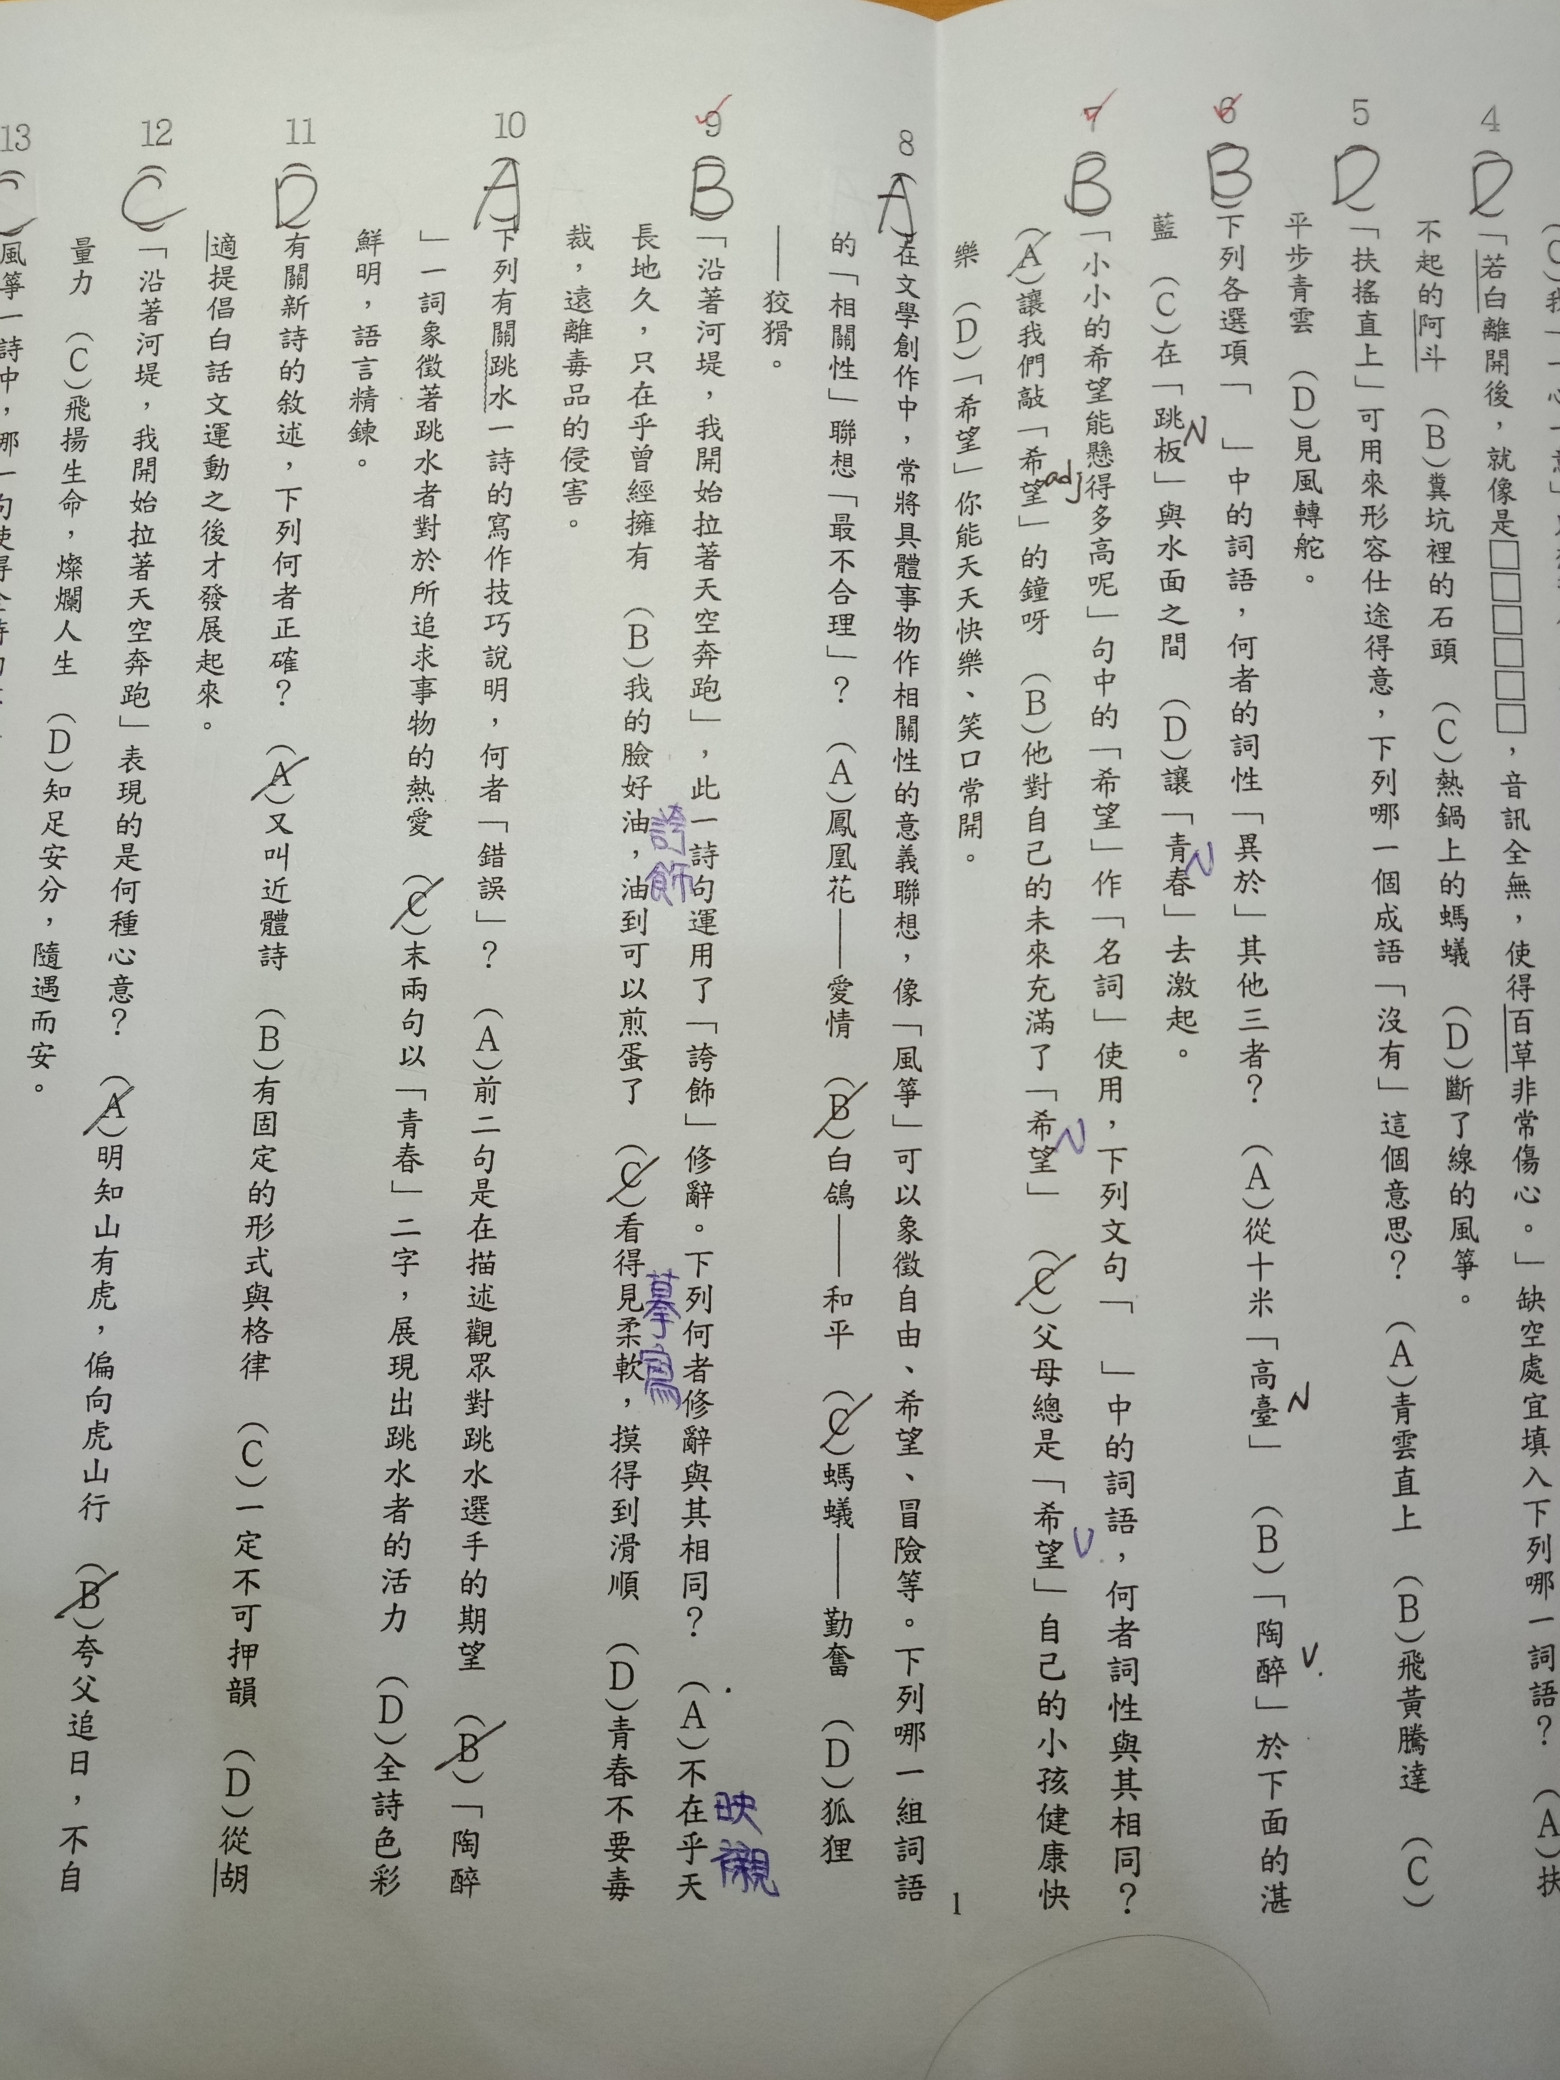 4
D
「若白離開後，就像是□□□□□□，音訊全無，使得百草非常傷心。」缺空處宜填入下列哪一詞語？　（A）扶
不起的阿斗　（B）糞坑裡的石頭　（C）熱鍋上的螞蟻　（D）斷了線的風箏。
5
D
「扶搖直上」可用來形容仕途得意，下列哪一個成語「沒有」這個意思？　（A）青雲直上　（B）飛黃騰達　（C）
平步青雲　（D）見風轉舵。
6
B
下列各選項「　」中的詞語，何者的詞性「異於」其他三者？　（A）從十米「高臺」　（B）「陶醉」於下面的湛
N
V.
藍　（C）在「跳板」與水面之間　（D）讓「青春」去激起。
N
N
7
B
「小小的希望能懸得多高呢」句中的「希望」作「名詞」使用，下列文句「　」中的詞語，何者詞性與其相同？
（A）讓我們敲「希望」的鐘呀　（B）他對自己的未來充滿了「希望」　（C）父母總是「希望」自己的小孩健康快
adj
N
V
樂　（D）「希望」你能天天快樂、笑口常開。
8
A
在文學創作中，常將具體事物作相關性的意義聯想，像「風箏」可以象徵自由、希望、冒險等。下列哪一組詞語
的「相關性」聯想「最不合理」？　（A）鳳凰花——愛情　（B）白鴿——和平　（C）螞蟻——勤奮　（D）狐狸
——狡猾。
9
B
「沿著河堤，我開始拉著天空奔跑」，此一詩句運用了「誇飾」修辭。下列何者修辭與其相同？　（A）不在乎天
映襯
長地久，只在乎曾經擁有　（B）我的臉好油，油到可以煎蛋了　（C）看得見柔軟，摸得到滑順　（D）青春不要毒
誇飾
摹寫
裁，遠離毒品的侵害。
10
A
下列有關跳水一詩的寫作技巧說明，何者「錯誤」？　（A）前二句是在描述觀眾對跳水選手的期望　（B）「陶醉
」一詞象徵著跳水者對於所追求事物的熱愛　（C）末兩句以「青春」二字，展現出跳水者的活力　（D）全詩色彩
鮮明，語言精鍊。
11
D
有關新詩的敘述，下列何者正確？　（A）又叫近體詩　（B）有固定的形式與格律　（C）一定不可押韻　（D）從胡
適提倡白話文運動之後才發展起來。
12
C
「沿著河堤，我開始拉著天空奔跑」表現的是何種心意？　（A）明知山有虎，偏向虎山行　（B）夸父追日，不自
量力　（C）飛揚生命，燦爛人生　（D）知足安分，隨遇而安。
13
C
風箏一詩中，哪一句使得全詩
1